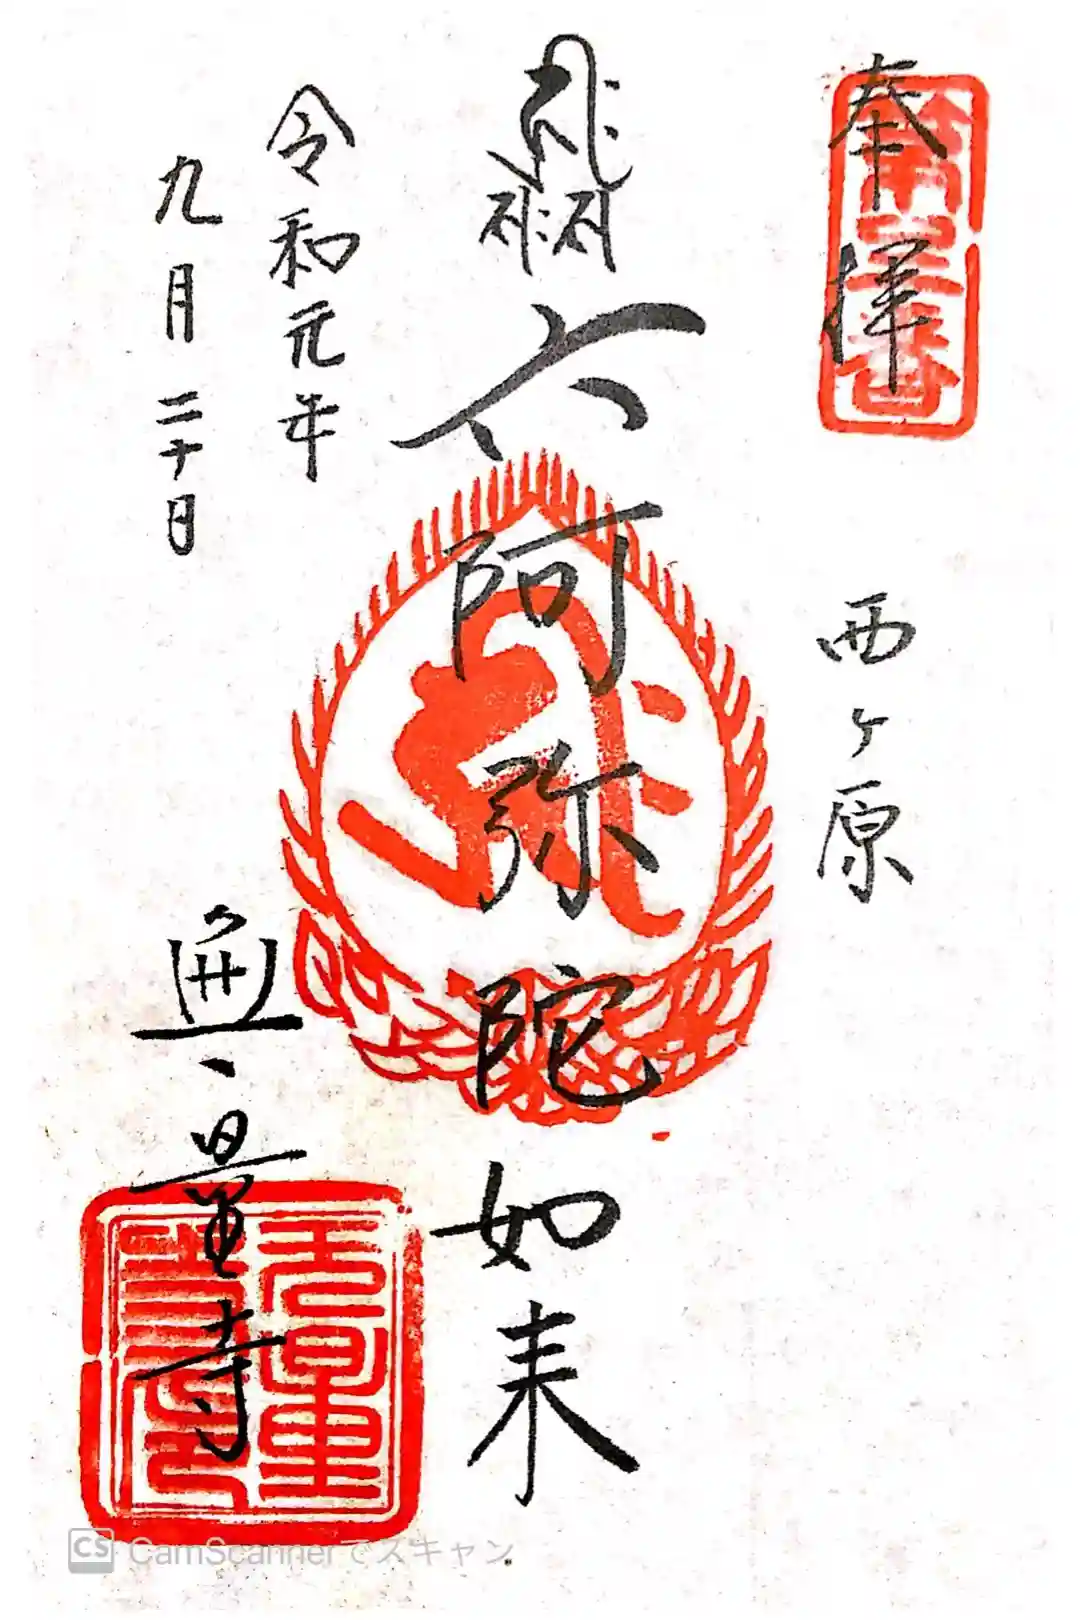 奉拝
第三番
西ヶ原
六阿弥陀如来
令和元年
九月二十日
無量寺
無量寺印
CamScannerでスキャン